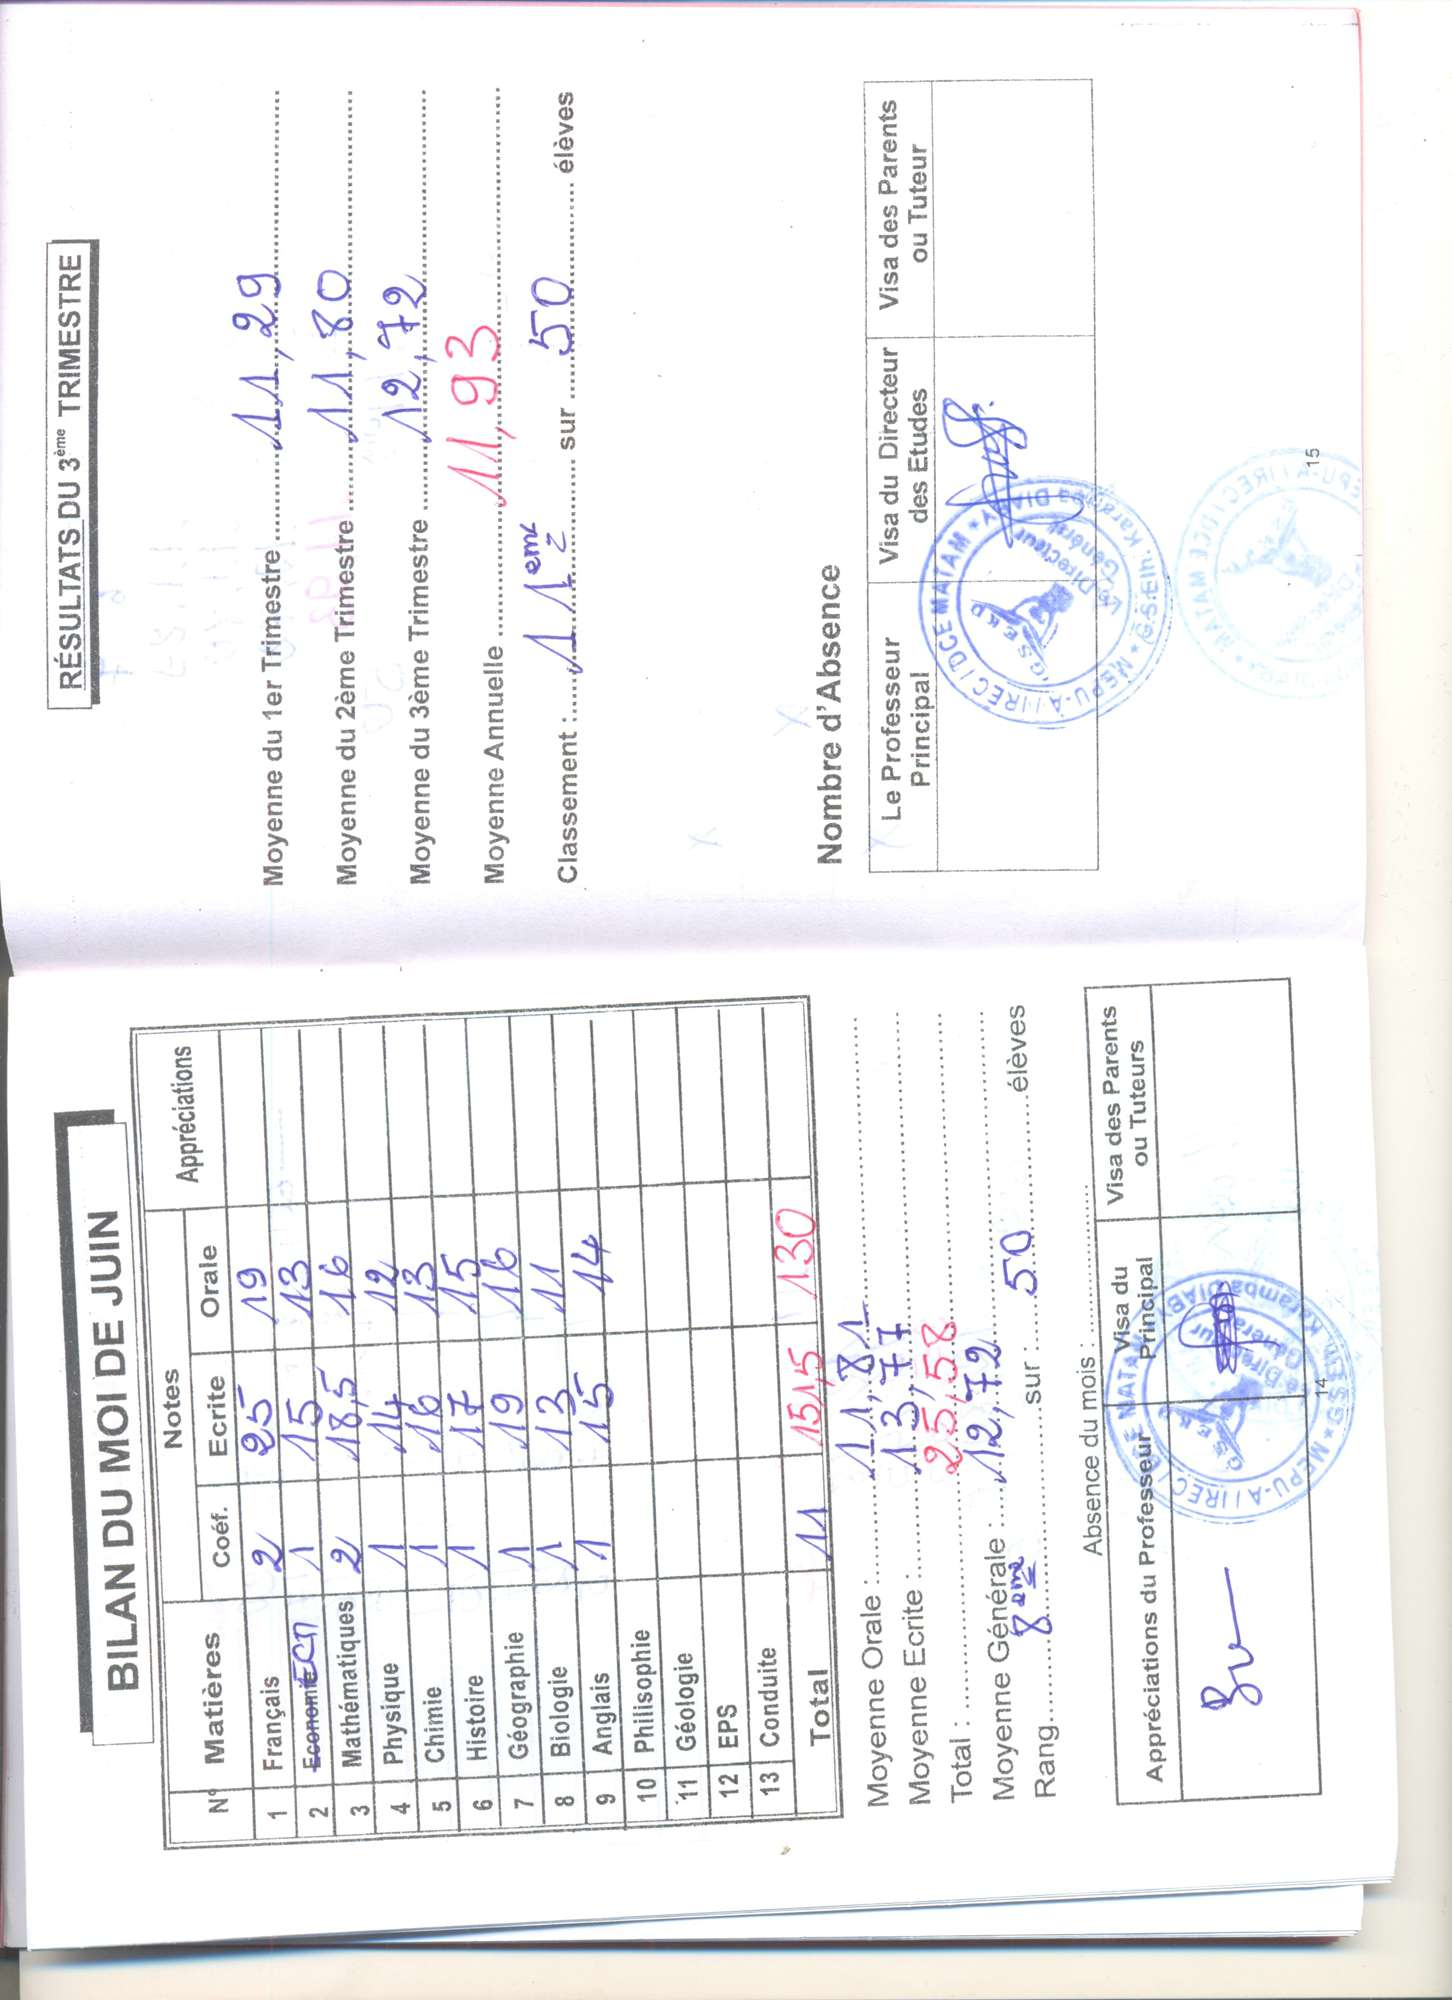 BILAN DU MOI DE JUIN
N° Matières Notes Appréciations
Coéf. Ecrite Orale
1 Français 2 25 19
2 Economie ECM 1 15 13
3 Mathématiques 2 18,5 16
4 Physique 1 14 12
5 Chimie 1 16 13
6 Histoire 1 17 15
7 Géographie 1 19 16
8 Biologie 1 13 11
9 Anglais 1 15 14
10 Philisophie
11 Géologie
12 EPS
13 Conduite
Total 11 151,5 130
Moyenne Orale : 11,81
Moyenne Ecrite : 13,77
Total : 25,58
Moyenne Générale : 12,72
Rang 8eme sur : 50 élèves
Absence du mois :
Appréciations du Professeur Visa du Principal Visa des Parents ou Tuteurs
14
RÉSULTATS DU 3ème TRIMESTRE
Moyenne du 1er Trimestre 11,29
Moyenne du 2ème Trimestre 11,80
Moyenne du 3ème Trimestre 12,72
Moyenne Annuelle 11,93
Classement : 11eme sur 50 élèves
Nombre d'Absence
Le Professeur Principal Visa du Directeur des Etudes Visa des Parents ou Tuteur
MEPU-A / IREC / DCE MATAM
G.S.Elh. Karamba DIABY
Le Directeur Général
G S E K D
15